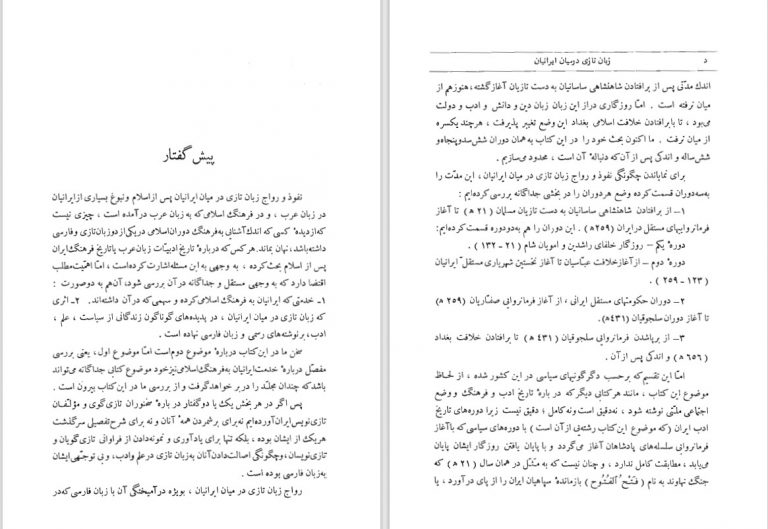 پیش گفتار
نفوذ و رواج زبان تازی در میان ایرانیان پس از اسلام و نبوغ بسیاری از ایرانیان
در زبان عرب ، و در فرهنگ اسلامی که به زبان عرب در آمده است ، چیزی نیست
که از دیدهٔ کسی که اندک آشنایی به فرهنگ دوران اسلامی در یکی از دو زبان تازی و فارسی
داشته باشد، نهان بماند. هر کس که دربارهٔ تاریخ ادبیّات زبان عرب یا تاریخ فرهنگ ایران
پس از اسلام بحث کرده ، به وجهی به این مسئله اشارت کرده است ، امّا اهمیّت مطلب
اقتضا دارد که به وجهی مستقل و جداگانه در آن بررسی شود، آن هم به دو صورت :
۱ـ خدمتی که ایرانیان به فرهنگ اسلامی کرده و سهمی که در آن داشته‌اند. ۲ـ اثری
که زبان تازی در میان ایرانیان ، در پدیده‌های گوناگون زندگانی از سیاست ، علم ،
ادب، بر نوشته‌های رسمی و زبان فارسی نهاده است .
سخن ما در این کتاب دربارهٔ موضوع دوم است امّا موضوع اول، یعنی بررسی
مفصّل دربارهٔ خدمت ایرانیان به فرهنگ اسلامی نیز خود موضوع کتابی جداگانه می‌تواند
باشد که چندان مجلّد را در بر خواهد گرفت و از بررسی ما در این کتاب بیرون است .
پس اگر در هر بخش یک یا دو گفتار در بارهٔ سخنوران تازی‌گوی و مؤلّفان
تازی‌نویس ایران آورده‌ایم نه برای برشمردن همهٔ آنان و نه برای شرح تفصیلی سرگذشت
هر یک از ایشان بوده ، بلکه تنها برای یادآوری و نمونه دادن از فراوانی تازی‌گویان و
تازی‌نویسان، و چگونگی اصالت دادن آنان به زبان تازی در علم و ادب، و بی توجّهی ایشان
به زبان فارسی بوده است .
رواج زبان تازی در میان ایرانیان ، بویژه در آمیختگی آن با زبان فارسی که در
د
زبان تازی در میان ایرانیان
اندک مدّتی پس از برافتادن شاهنشاهی ساسانیان به دست تازیان آغاز گشته، هنوز هم از
میان نرفته است . امّا روزگاری دراز این زبان زبان دین و دانش و ادب و دولت
می‌بود ، تا با برافتادن خلافت اسلامی بغداد این وضع تغییر پذیرفت ، هر چند یکسره
از میان نرفت . ما اکنون بحث خود را در این کتاب به همان دوران شش سد و پنجاه و
شش ساله و اندکی پس از آن که دنبالهٔ آن است ، محدود می‌سازیم .
برای نمایاندن چگونگی نفوذ و رواج زبان تازی در میان ایرانیان ، این مدّت را
به سه دوران قسمت کرده و وضع هر دوران را در بخشی جداگانه بررسی کرده‌ایم :
۱ـ از برافتادن شاهنشاهی ساسانیان به دست تازیان مسلمان (۲۱ ه) تا آغاز
فرمانرواییهای مستقل در ایران (۲۵۹ه) . این دوران را هم به دو دوره قسمت کرده‌ایم :
دورهٔ یکم ـ روزگار خلفای راشدین و امویان شام (۲۱ ـ ۱۳۲) .
دوره دوم ـ از آغاز خلافت عباسیان تا آغاز نخستین شهریاری مستقلّ ایرانیان
(۱۲۳ ـ ۲۵۹) .
۲ـ دوران حکومتهای مستقل ایرانی ، از آغاز فرمانروایی صفّاریان (۲۵۹ ه)
تا آغاز دوران سلجوقیان (۴۳۱ه).
۳ـ از برپا شدن فرمانروایی سلجوقیان (۴۳۱ ه) تا برافتادن خلافت بغداد
(۶۵۶ ه) و اندکی پس از آن .
امّا این تقسیم که برحسب دگرگونیهای سیاسی در این کشور شده ، از لحاظ
موضوع این کتاب ، مانند هر کتابی دیگر که در بارهٔ تاریخ ادب و فرهنگ و وضع
اجتماعی ملّتی نوشته شود ، نه دقیق است و نه کامل ؛ دقیق نیست زیرا دوره‌های تاریخ
ادب ایران (که موضوع این کتاب رشته‌یی از آن است ) با دوره‌های سیاسی که با آغاز
فرمانروایی سلسله‌های پادشاهان آغاز می‌گردد و با پایان یافتن روزگار ایشان پایان
می‌یابد ، مطابقت کامل ندارد ، و چنان نیست که به مثل در همان سال (۲۱ ه) که
جنگ نهاوند به نام (فَتْحُ الْفُتُوح) بازماندهٔ سپاهیان ایران را از پای درآورد ، یا